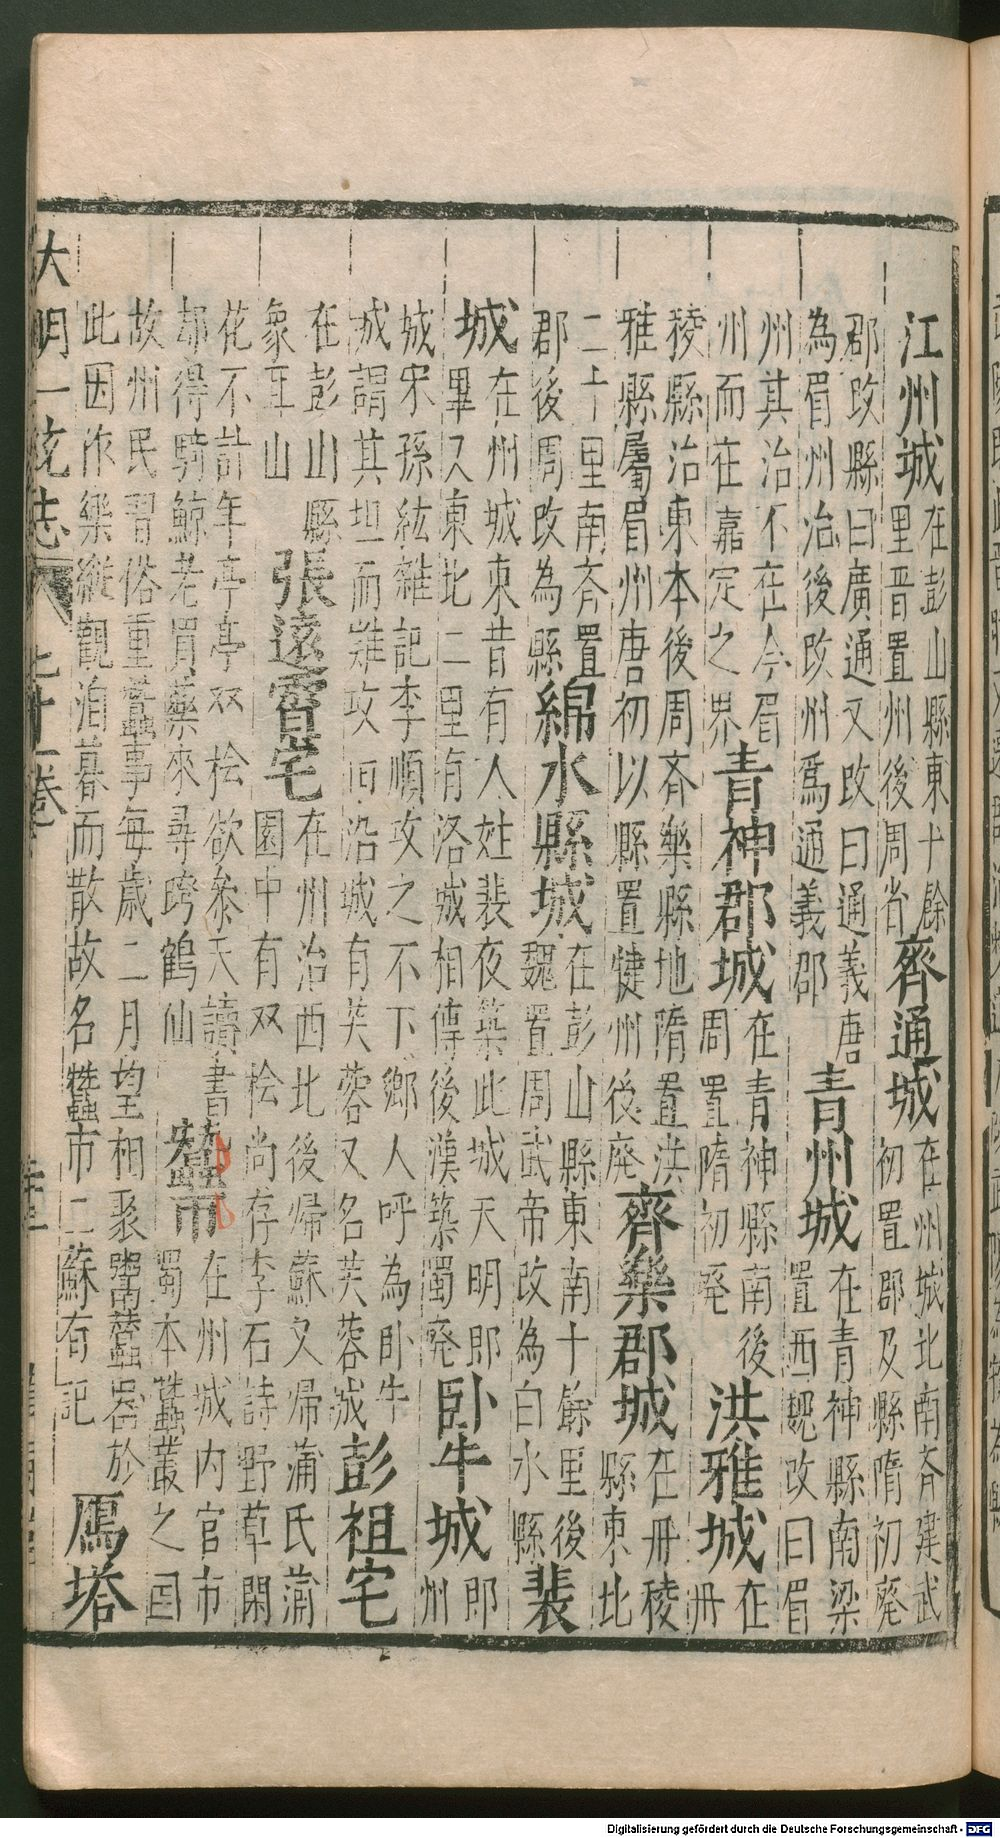 江州城 在彭山縣東十餘
里晋置州後周省
齊通城 在州城北南齊建武
初置郡及縣隋初廢
郡改縣曰廣通又改曰通義唐
為眉州治後改州爲通義郡
青州城 在青神縣南梁
置西魏改曰眉
州其治不在今眉
州而在嘉定之界
青神郡城 在青神縣南後
周置隋初廃
洪雅城 在
丹
稜縣治東本後周齊樂縣地隋置洪
雅縣屬眉州唐初以縣置犍州後廃
齊樂郡城 在丹稜
縣東北
二十里南齊置
郡後周改為縣
綿水縣城 在彭山縣東南十餘里後
魏置周武帝改為白水縣
裴
城 在州城東昔有人姓裴夜築此城天明即
畢又東北二里有洛城相傳後漢築蜀廃
卧牛城 即
州
城宋孫紘雜記李順攻之不下鄉人呼為卧牛
城謂其坦而難攻囬沿城有芙蓉又名芙蓉城
彭祖宅
在彭山縣
象耳山
張遠霄宅 在州治西北後歸蘇又歸蒲氏蒲
園中有双桧尚存李石詩野草閑
花不計年亭亭双桧欲參天讀書
却得騎鯨老買藥來尋跨鶴仙
蠶市 在州城内官市
蜀本蠶叢之国
故州民習俗重蠶事每歲二月望相聚鬻蠶器於
此因作樂縱觀洎暮而散故名蠶市二蘇有記
鴈塔
大明一統志 七十一卷
Digitalisierung gefördert durch die Deutsche Forschungsgemeinschaft - DFG